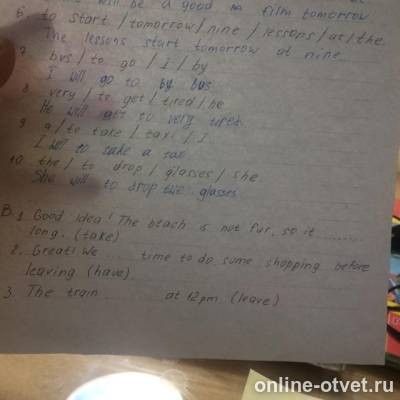 will be a good film tomorrow
6. to start / tomorrow / nine / lessons / at / the.
The lessons start tomorrow at nine
7 bus / to go / I / by
I will go to by bus
8 very / to get / tired / he
He will get so very tired
9 a / to take / taxi / I
I will to take a taxi
10. the / to drop / glasses / she
She will to drop the glasses
B. 1 Good idea! The beach is not fur, so it ........
long. (take)
2. Great! We ..... time to do some shopping before
leaving (have)
3. The train ...... at 12pm (leave)
online-otvet.ru